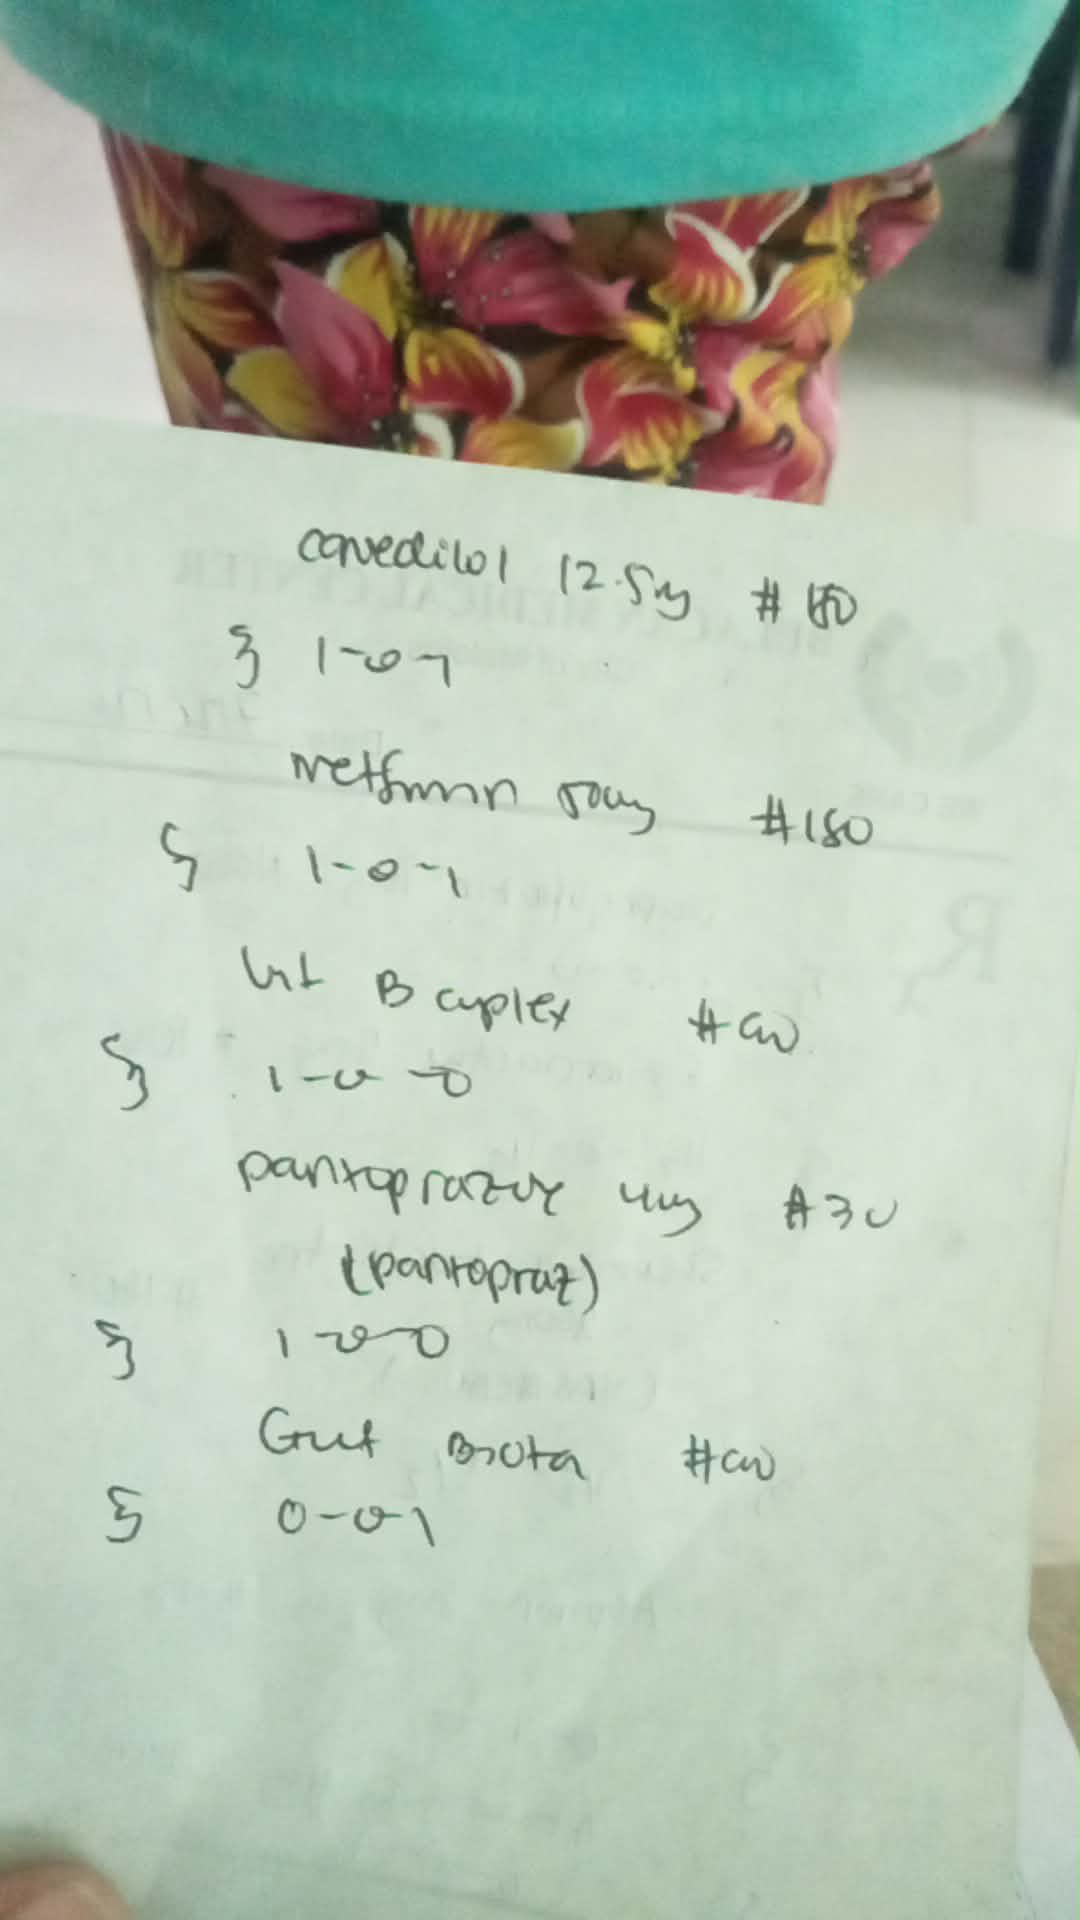 carvedilol 12.5mg #180
S 1-0-1
metformin 500mg #180
S 1-0-1
Vit B complex #90
S 1-0-0
pantoprazole 40mg #30
(pantopraz)
S 1-0-0
Gut Biota #90
S 0-0-1
MEDICAL CENTER
Rx